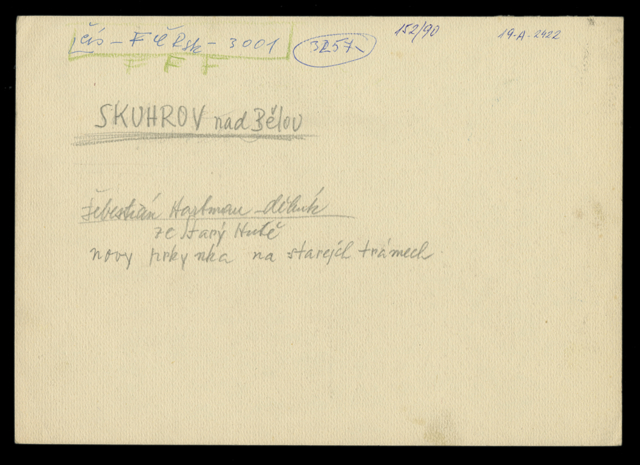 čís - F Č Rsk - 3001
3257-
152/90
19-A-2422
F F F
SKUHROV nad Bělou
Šebestián Hartman - dělník
ze Starý Hutě
nový prkynka na starejch trámech